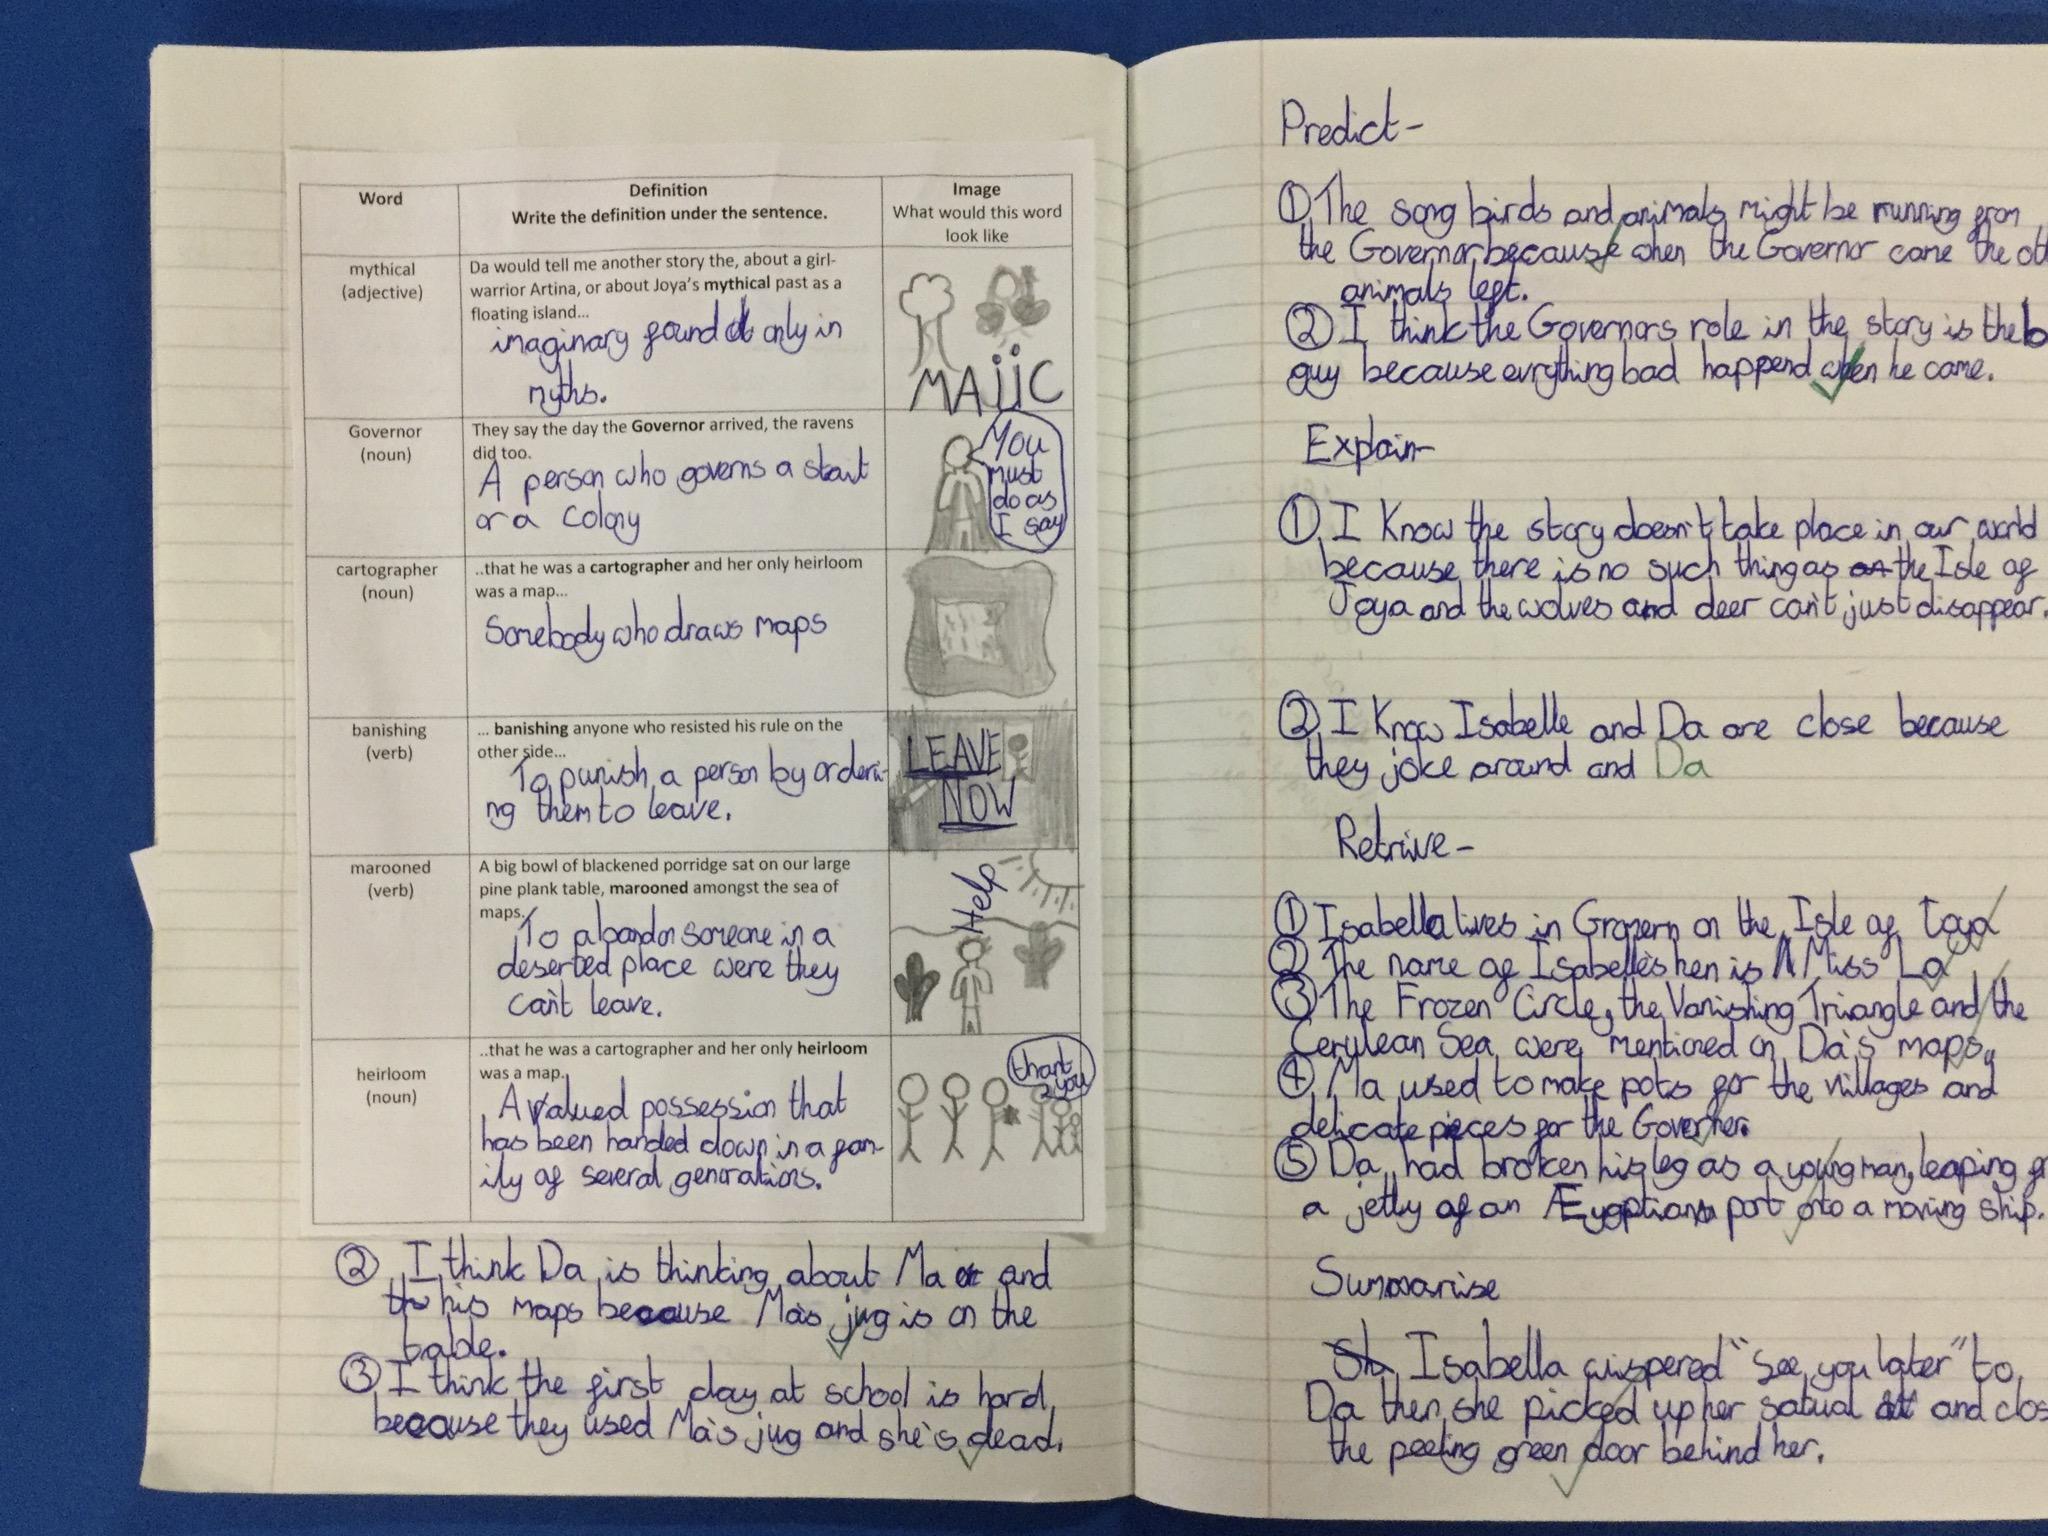 Word
Definition
Write the definition under the sentence.
Image
What would this word
look like
mythical
(adjective)
Da would tell me another story the, about a girl-
warrior Artina, or about Joya's mythical past as a
floating island...
imaginary found only in
myths.
MAJIC
Governor
(noun)
They say the day the Governor arrived, the ravens
did too.
A person who governs a
or a colony
You
must
do as
I say
cartographer
(noun)
..that he was a cartographer and her only heirloom
was a map...
Somebody who draws maps
banishing
(verb)
... banishing anyone who resisted his rule on the
other side...
To punish a person by orderi-
ng them to leave.
LEAVE
NOW
marooned
(verb)
A big bowl of blackened porridge sat on our large
pine plank table, marooned amongst the sea of
maps.
To abandon someone in a
deserted place were they
can't leave.
Help
heirloom
(noun)
..that he was a cartographer and her only heirloom
was a map.
A valued possession that
has been handed down in a fam-
ily of several genorations.
thank
you
② I think Da is thinking about Ma and
his maps because Ma's jug is on the
table.
③ I think the first day at school is hard
because they used Ma's jug and she's dead.
Predict-
① The song birds and animals might be running from
the Governor because when the Governor came the ot
animals left.
② I think the Governors role in the story is the b
guy because evrything bad happend when he came.
Explain-
① I Know the story doesn't take place in our world
because there is no such thing as the Isle of
Joya and the wolves and deer can't just disappear.
② I Know Isabelle and Da are close because
they joke around and Da
Retrive-
① Isabella lives in Gromern on the Isle of Joya
② The name of Isabelle's hen is Miss La
③ The Frozen Circle, the Vanishing Triangle and the
Cerulean Sea were mentioned on Da's maps.
④ Ma used to make pots for the villages and
delicate pieces for the Governer.
⑤ Da had broken his leg as a young man, leaping
a jetty of an Ægyptian port onto a moving ship.
Summarise
Sh Isabella wispered "See you later" to
Da then she picked up her satual and clos
the peeling green door behind her.